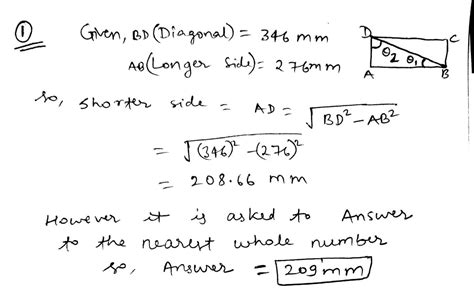 ① Given, BD (Diagonal) = 346 mm
AB (Longer side) = 276 mm
D C
θ2 θ1
A B
so, shorter side = AD = √BD² - AB²
= √(346)² - (276)²
= 208.66 mm
However it is asked to Answer
to the nearest whole number
so, Answer = 209 mm